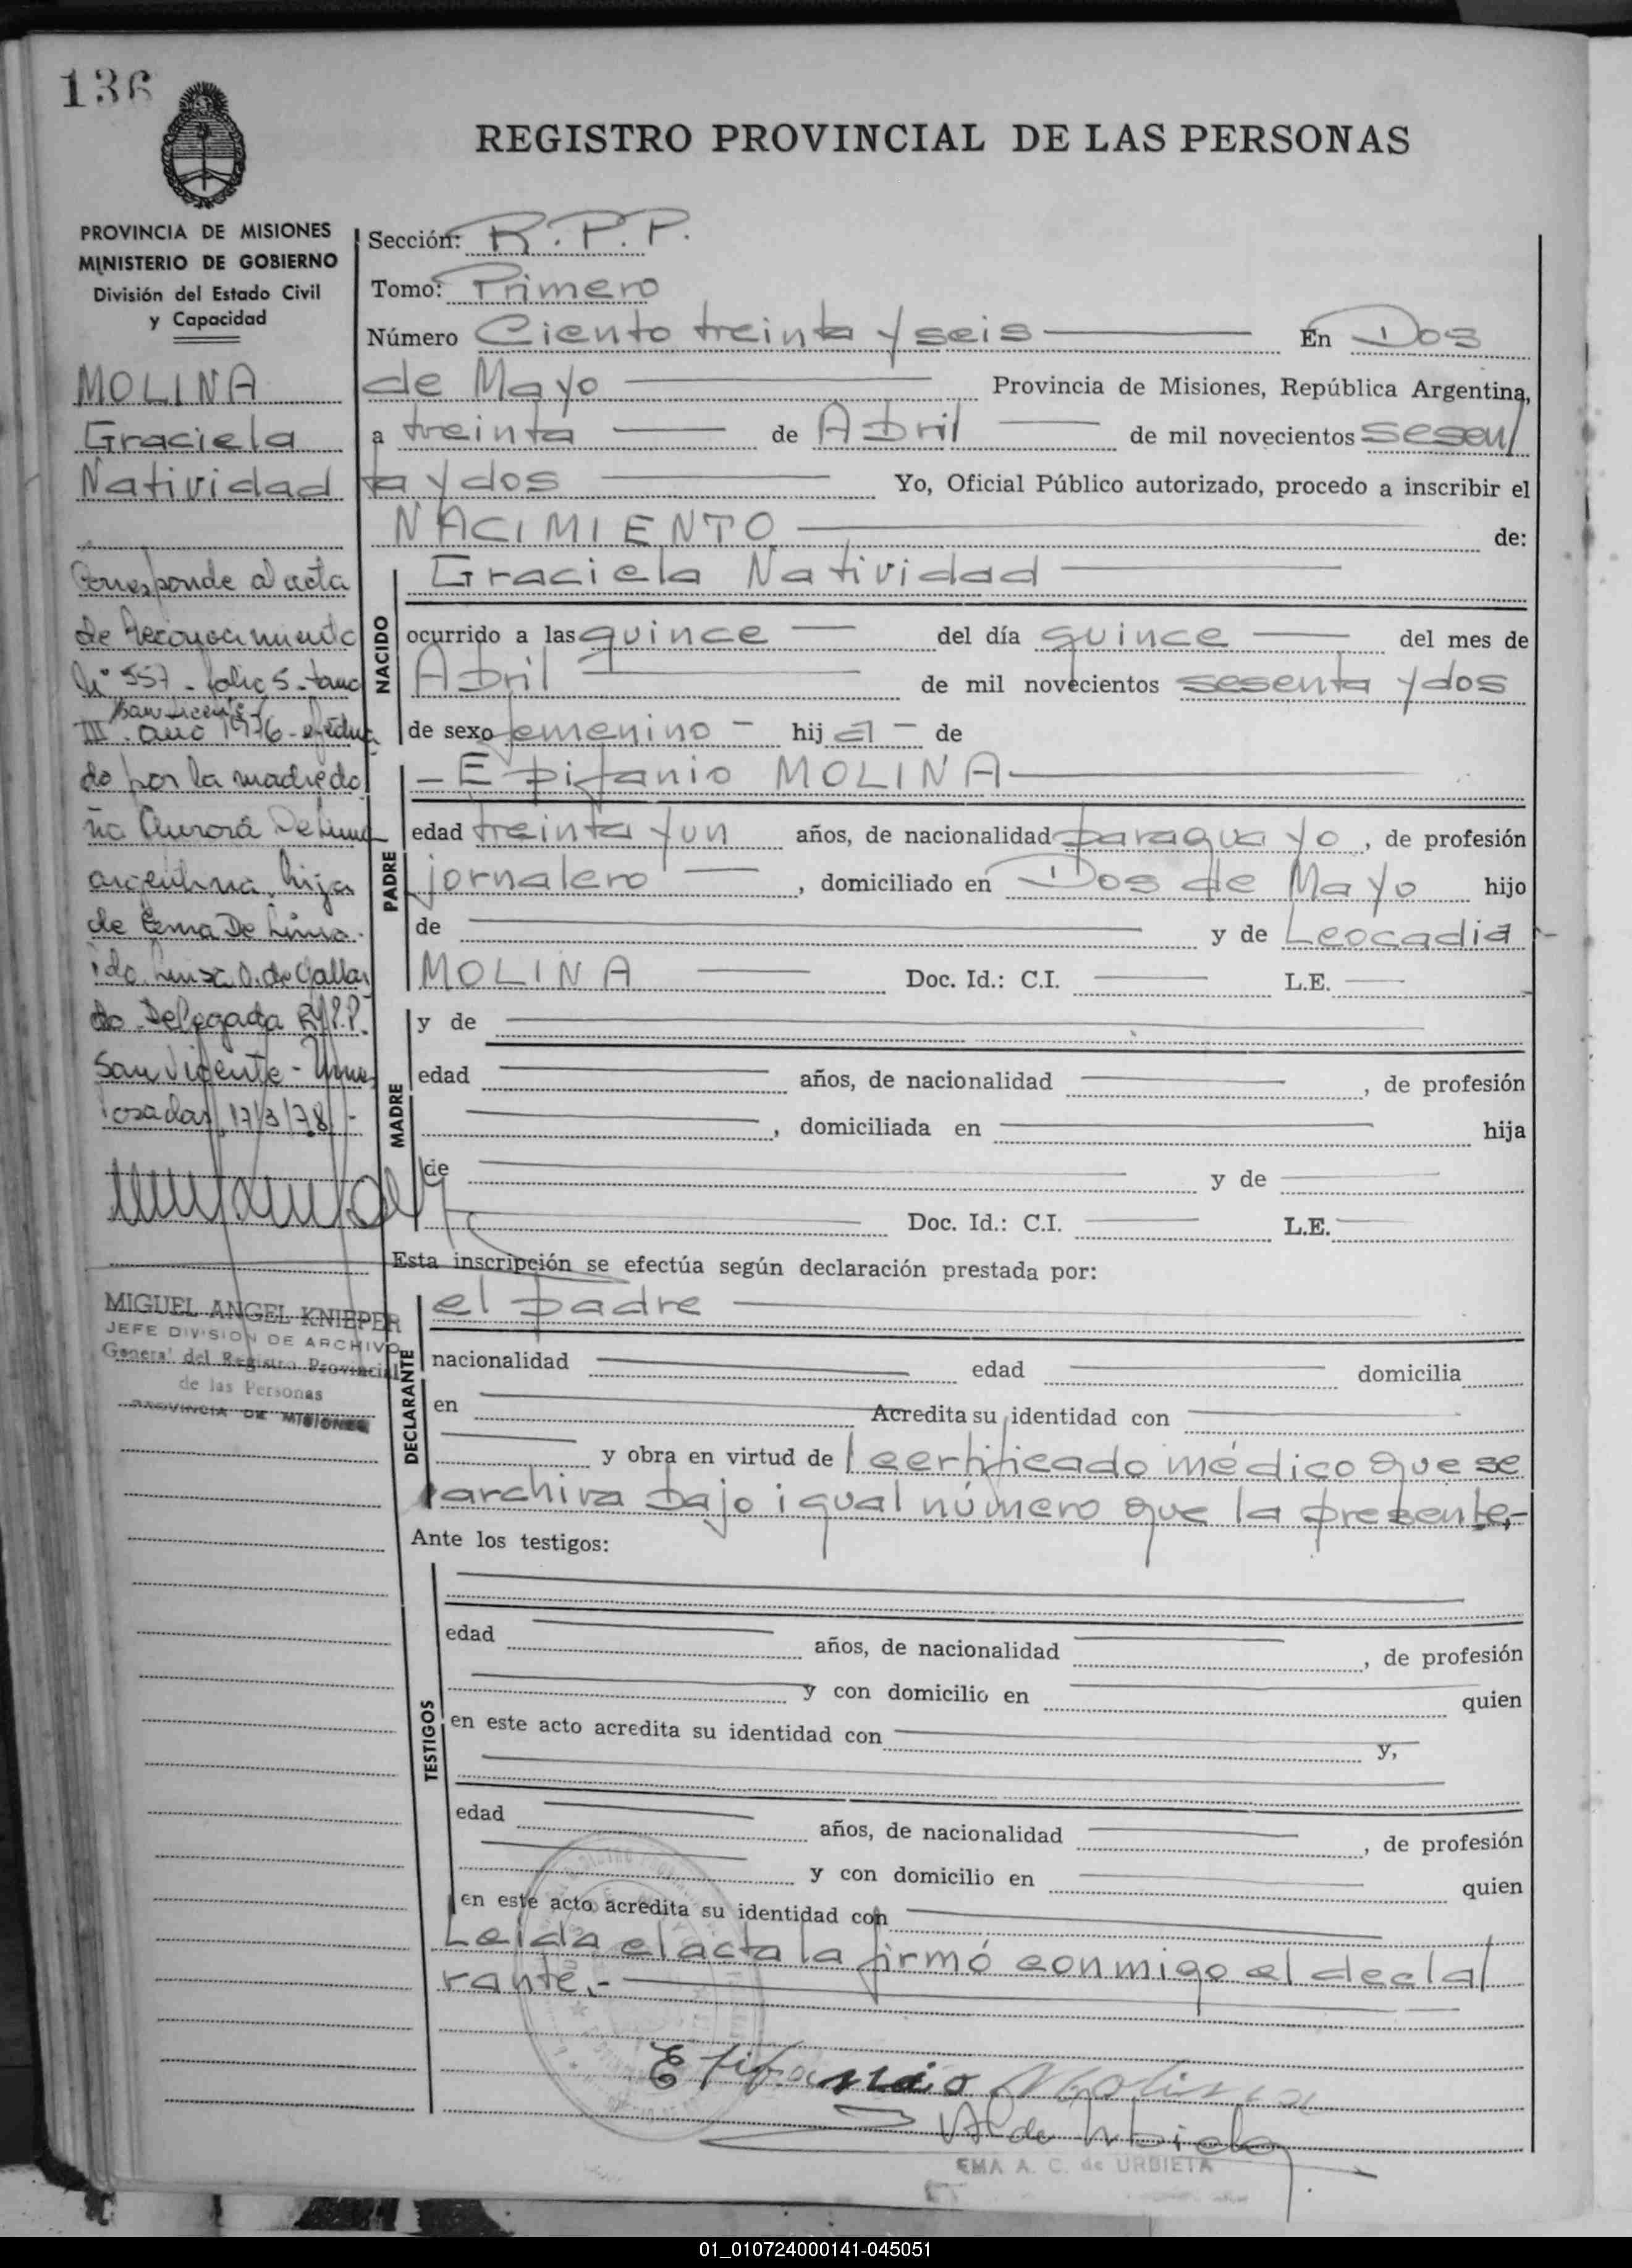 136
REGISTRO PROVINCIAL DE LAS PERSONAS
PROVINCIA DE MISIONES
MINISTERIO DE GOBIERNO
División del Estado Civil
y Capacidad
MOLINA
Graciela
Natividad
Corresponde al acta
de Reconocimiento
Nº 557 - folio 5 - tomo
San Vicente
III. año 1976 - efectua
do por la madre do
ña Aurora De Lima
argentina, hija
de Ema De Lima.
do. Luisa O. de Galla
do Delegada R.P.P.
San Vicente - Mnes
Posadas, 17/3/78 -
MIGUEL ANGEL KNIEPER
JEFE DIVISION DE ARCHIVO
General del Registro Provincial
de las Personas
PROVINCIA DE MISIONES
Sección: R.P.P.
Tomo: Primero
Número Ciento treinta y seis En Dos
de Mayo Provincia de Misiones, República Argentina,
a treinta de Abril de mil novecientos sesen/
ta y dos Yo, Oficial Público autorizado, procedo a inscribir el
NACIMIENTO de:
NACIDO
Graciela Natividad
ocurrido a las quince del día quince del mes de
Abril de mil novecientos sesenta y dos
de sexo femenino - hij a - de
PADRE
- Epifanio MOLINA
edad treinta y un años, de nacionalidad paraguayo, de profesión
jornalero, domiciliado en Dos de Mayo hijo
de y de Leocadia
MOLINA Doc. Id.: C.I. L.E.
MADRE
y de
edad años, de nacionalidad , de profesión
, domiciliada en hija
de y de
Doc. Id.: C.I. L.E.
Esta inscripción se efectúa según declaración prestada por:
DECLARANTE
el padre
nacionalidad edad domicilia
en Acredita su identidad con
y obra en virtud de / certificado médico que se
archiva bajo igual número que la presente,-
Ante los testigos:
TESTIGOS
edad años, de nacionalidad , de profesión
y con domicilio en quien
en este acto acredita su identidad con y,
edad años, de nacionalidad , de profesión
y con domicilio en quien
en este acto acredita su identidad con
Leida el acta la firmó conmigo el decla/
rante.-
Epifanio Molina
EMA A. C. de URBIETA
01_010724000141-045051